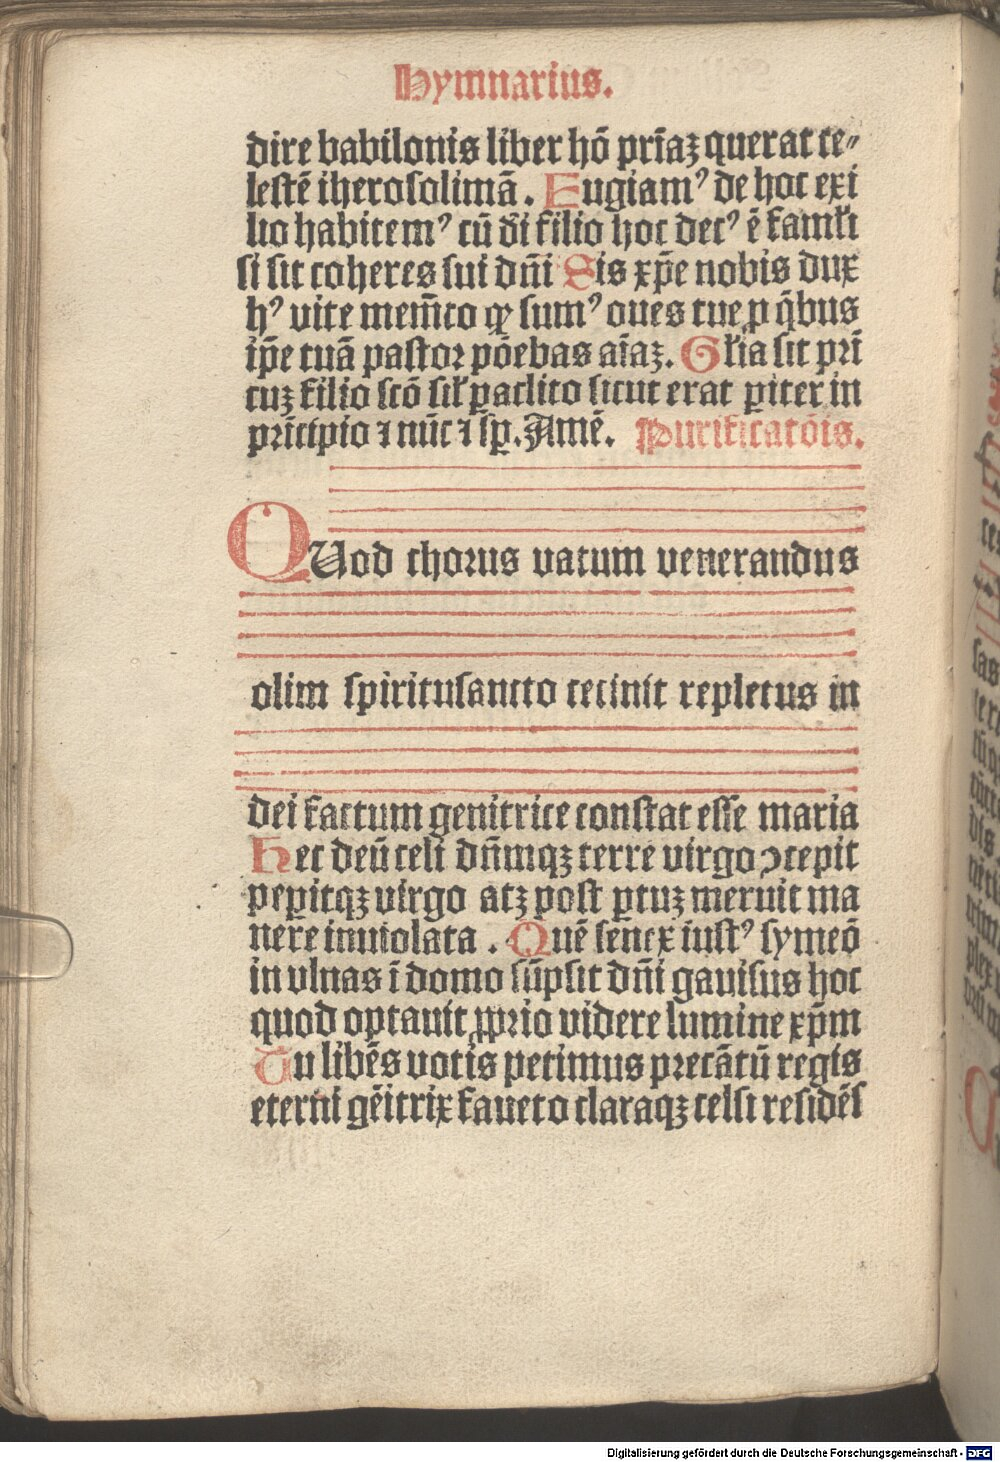 Hymnarius.
dire babilonis liber hō prīaꝫ querat ce⸗
lestē iherosolimā. Fugiamꝰ de hoc exi
lio habitemꝰ cū di filio hoc decꝰ ē famłi
si sit coheres sui dn̄i Sis xp̄e nobis dux
hꝰ vite mem̄to qꝛ sumꝰ oues tue ꝓ q̄bus
ip̄e tuā pastor pōebas aīaꝫ. Głia sit prī
cuꝫ filio scō sił ꝑaclito sicut erat ꝑiter in
prīcipio ⁊ nūc ⁊ sꝑ. Amē. Purificatōis.
QUod chorus vatum venerandus
olim spiritusancto cecinit repletus in
dei factum genitrice constat esse maria
Hec deū celi dn̄mqꝫ terre virgo ꝯcepit
peꝑitqꝫ virgo atꝫ post ꝑtuꝫ meruit ma
nere inuiolata. Quē senex iustꝰ symeō
in vlnas ī domo sūpsit dn̄i gauisus hoc
quod optauit ꝓprio videre lumine xp̄m
Tu libēs votis petimus precātū regis
eterni gēitrix faueto claraqꝫ celsi residēs
Digitalisierung gefördert durch die Deutsche Forschungsgemeinschaft - DFG